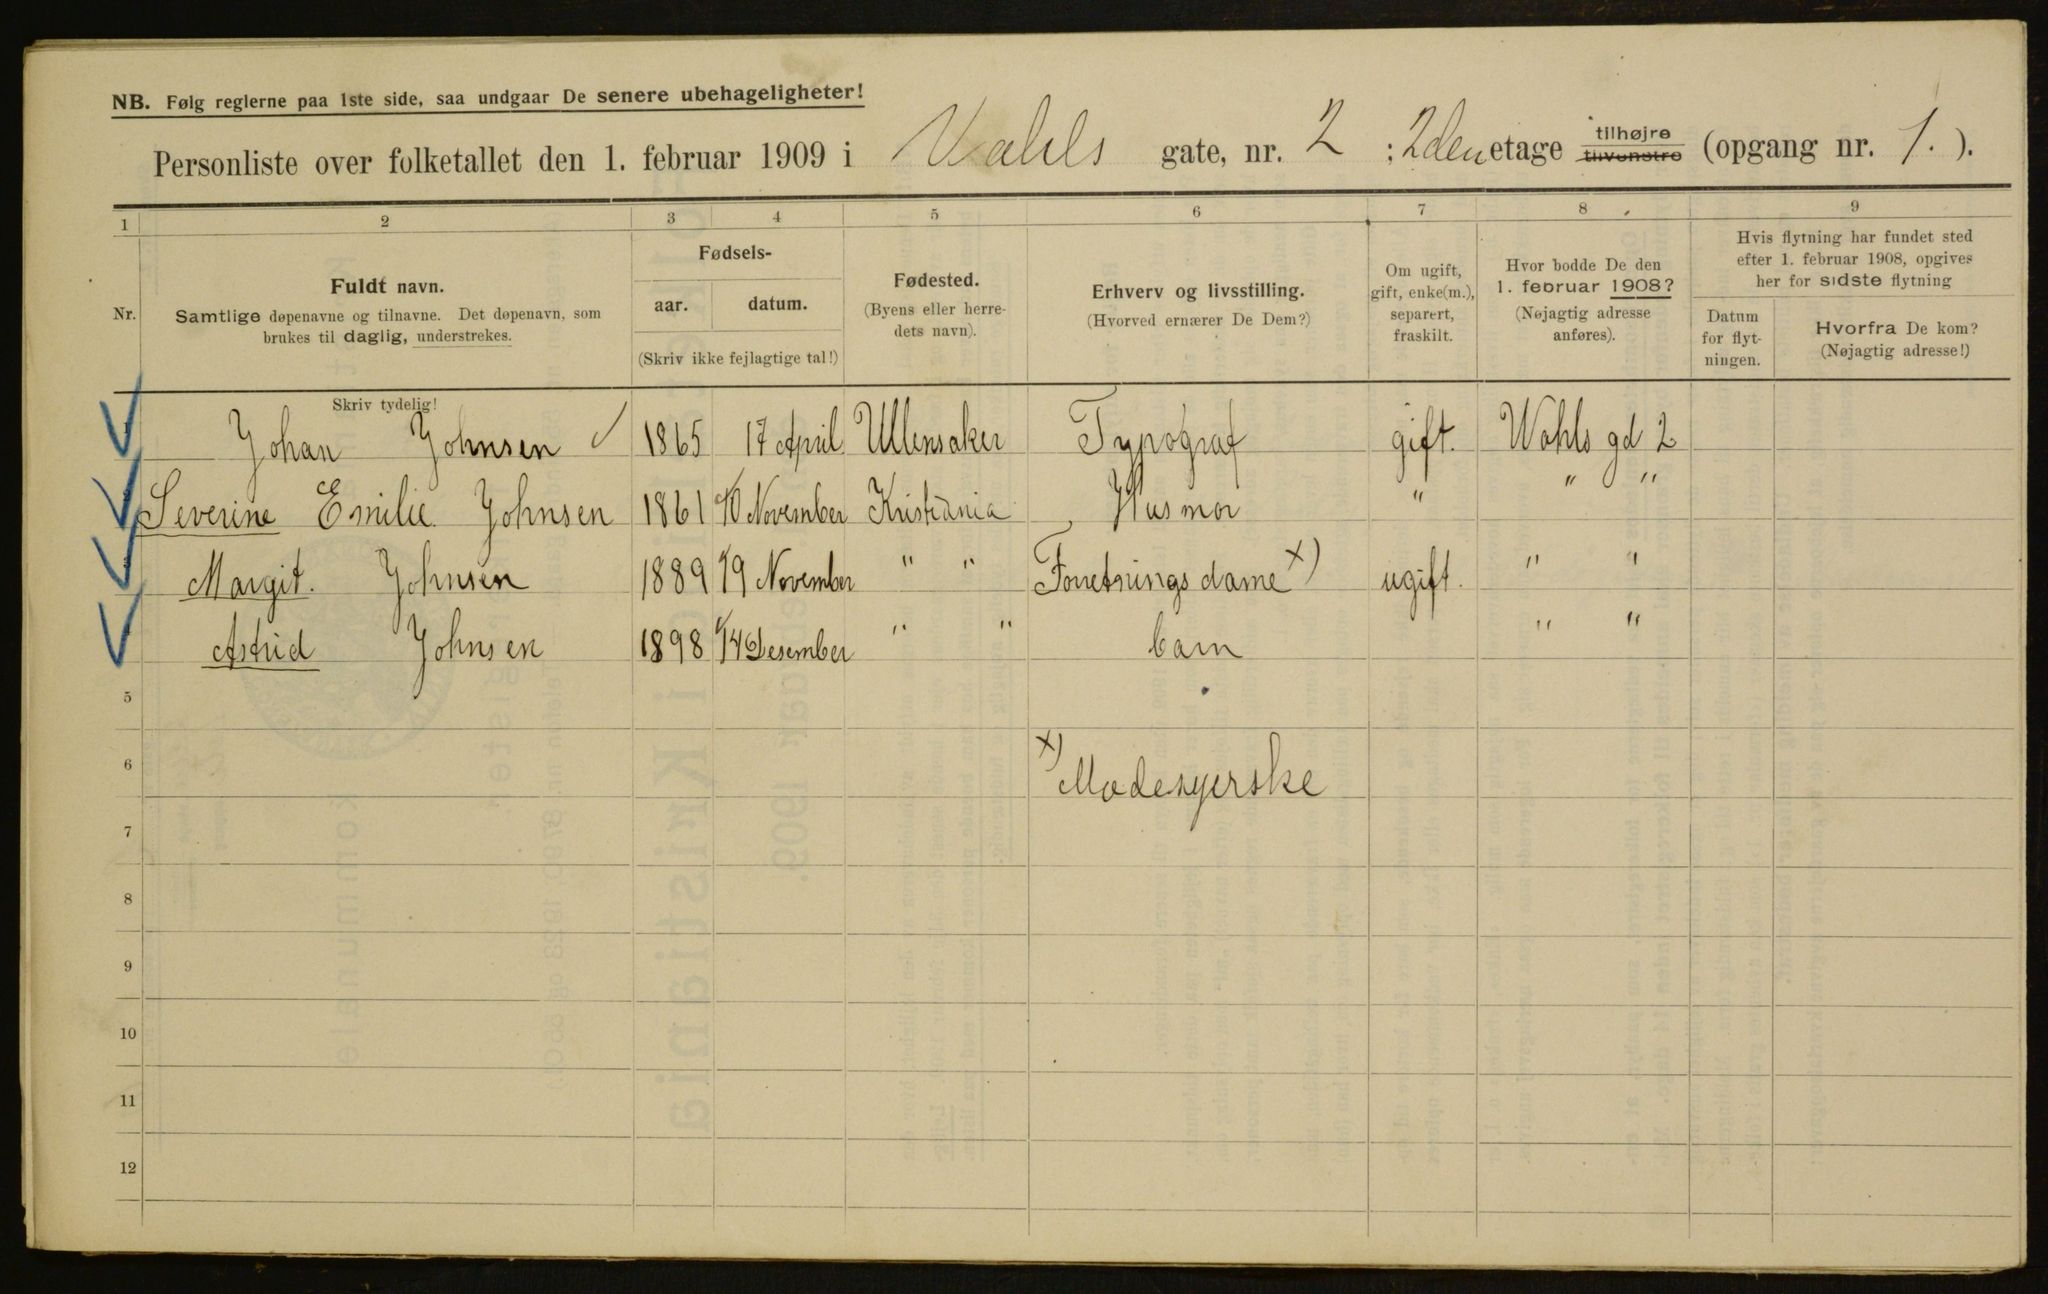 NB. Følg reglerne paa 1ste side, saa undgaar De senere ubehageligheter!
Personliste over folketallet den 1. februar 1909 i Vahls gate, nr. 2 ; 2den etage tilhøjre tilvenstre (opgang nr. 1. ).
1 2 3 4 5 6 7 8 9
Nr.
Fuldt navn.
Samtlige døpenavne og tilnavne. Det døpenavn, som
brukes til daglig, understrekes.
Fødsels-
aar. datum.
(Skriv ikke fejlagtige tal!)
Fødested.
(Byens eller herre-
dets navn).
Erhverv og livsstilling.
(Hvorved ernærer De Dem?)
Om ugift,
gift, enke(m.),
separert,
fraskilt.
Hvor bodde De den
1. februar 1908?
(Nøjagtig adresse
anføres).
Hvis flytning har fundet sted
efter 1. februar 1908, opgives
her for sidste flytning
Datum
for flyt-
ningen.
Hvorfra De kom?
(Nøjagtig adresse!)
Skriv tydelig!
Johan Johnsen 1865 17 April Ullensaker Typograf gift. Wahls gd 2
Severine Emilie Johnsen 1861 10 November Kristiania Husmor " " "
Margit. Johnsen 1889 19 November " " Forretnings dame x) ugift. " "
Astrid Johnsen 1898 14 Desember " " barn " "
5
6 x) Modesyerske
7
8
9
10
11
12